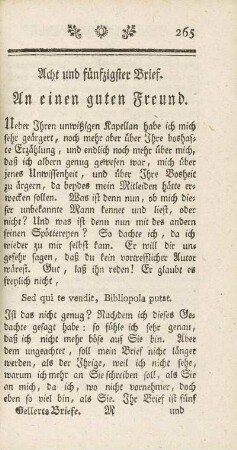 265
Acht und fünfzigster Brief.
An einen guten Freund.
Ueber Ihren unwißigen Kapellan habe ich mich
sehr geärgert, noch mehr aber über Ihre boshaf-
te Erzählung, und endlich noch mehr über mich,
daß ich so albern genug gewesen war, mich über
jenes Unwissenheit, und über Ihre Bosheit
zu ärgern, da beydes mein Mitleiden hätte er-
wecken sollen. Was ist denn nun, ob mich die-
ser unbekannte Mann kennet und liest, oder
nicht? Und was ist denn nun mit des andern
seinen Spöttereyen? So dachte ich, da ich
wieder zu mir selbst kam. Er will dir un-
gefehr sagen, daß du kein vortrefflicher Autor
wärest. Gut, laß ihn reden! Er glaubt es
freylich nicht,
Sed qui te vendit, Bibliopola putat.
Ist das nicht genug? Nachdem ich dieses Ge-
dachte gesagt habe: so fühle ich sehr genau,
daß ich nicht mehr böse auf Sie bin. Aber
dem ungeachtet, soll mein Brief nicht länger
werden, als der Ihrige, weil ich nicht sehe,
warum ich mehr an Sie schreiben soll, als Sie
an mich, da ich, wo nicht vornehmer, doch
eben so viel bin, als Sie. Ihr Brief ist fünf
Gellerts Briefe. R und